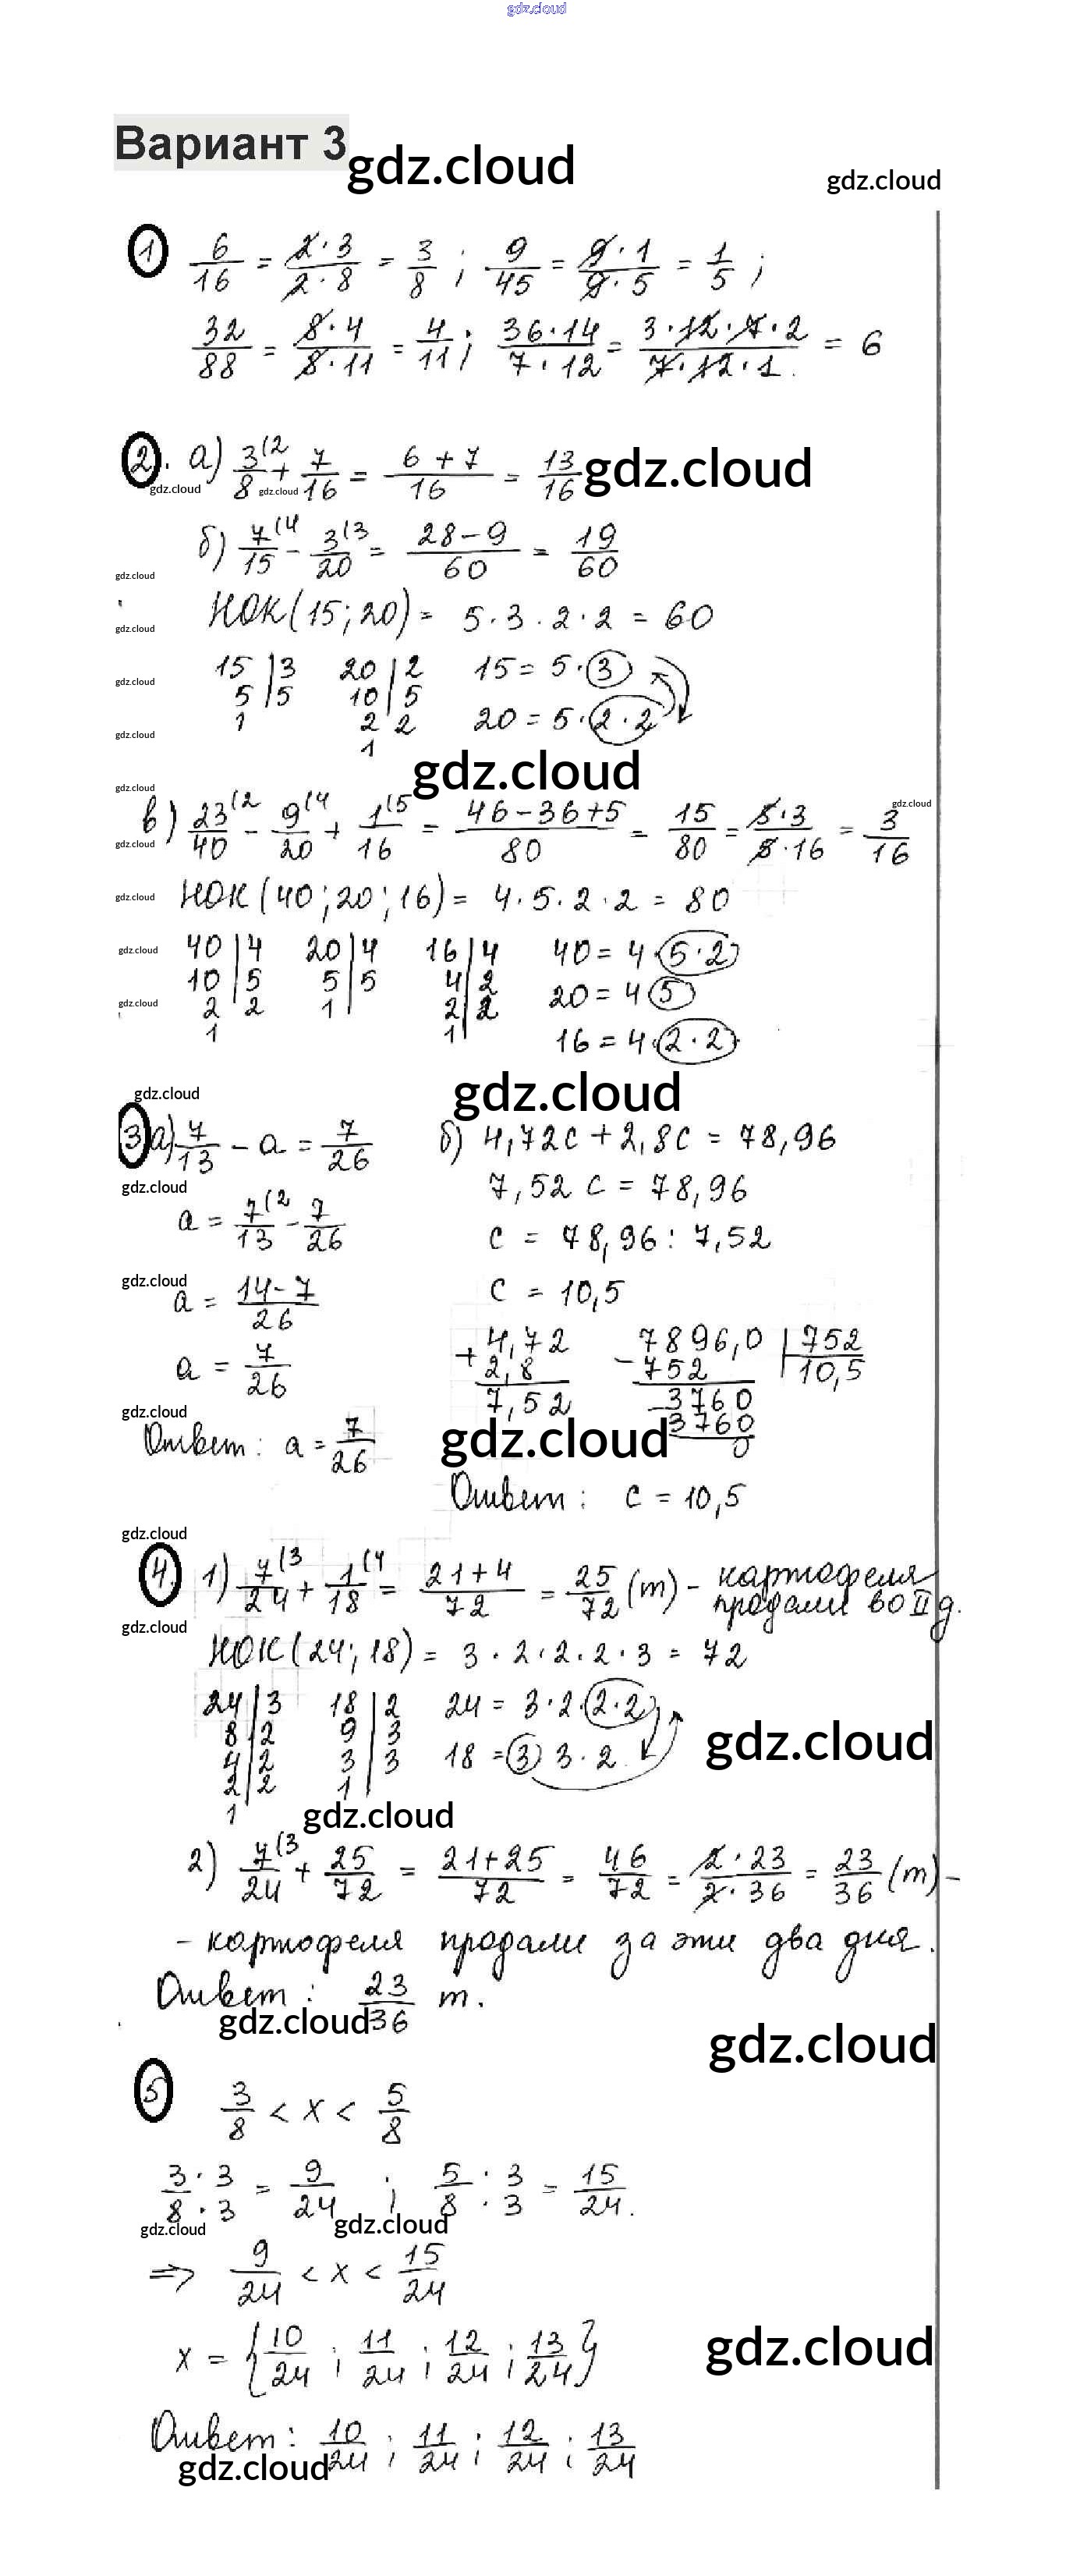 gdz.cloud
Вариант 3
gdz.cloud
gdz.cloud
1 6/16 = 2·3/2·8 = 3/8 ; 9/45 = 9·1/9·5 = 1/5 ;
32/88 = 8·4/8·11 = 4/11 ; 36·14/7·12 = 3·12·7·2/7·12·1 = 6
2. а) 3/8 (2 + 7/16 = 6+7/16 = 13/16
gdz.cloud
gdz.cloud
gdz.cloud
б) 7/15 (4 - 3/20 (3 = 28-9/60 = 19/60
gdz.cloud
НОК(15;20) = 5·3·2·2 = 60
gdz.cloud
15|3 20|2 15 = 5·3
gdz.cloud
5|5 10|5
1 2 2 20 = 5·2·2
gdz.cloud
1
gdz.cloud
gdz.cloud
в) 23/40 (2 - 9/20 (4 + 1/16 (5 = 46-36+5/80 = 15/80 = 5·3/5·16 = 3/16
gdz.cloud
gdz.cloud
НОК(40;20;16) = 4·5·2·2 = 80
gdz.cloud
40|4 20|4 16|4 40 = 4·5·2
gdz.cloud
10|5 5|5 4|2 20 = 4·5
gdz.cloud
2 2 1 2|2
1 1 16 = 4·2·2
gdz.cloud
gdz.cloud
3 а) 7/13 - a = 7/26 б) 4,72c + 2,8c = 78,96
gdz.cloud
7,52 c = 78,96
a = 7/13 (2 - 7/26 c = 78,96 : 7,52
gdz.cloud
a = 14-7/26 c = 10,5
+ 4,72 7896,0 |752
a = 7/26 2,8 - 752 10,5
7,52 - 3760
gdz.cloud
3760
0
Ответ: a = 7/26 gdz.cloud
Ответ: c = 10,5
gdz.cloud
4. 1) 7/24 (3 + 1/18 (4 = 21+4/72 = 25/72 (т) - картофеля
продали во II д.
gdz.cloud
НОК(24;18) = 3·2·2·2·3 = 72
24|3 18|2 24 = 3·2·2·2
8|2 9|3
gdz.cloud
4|2 3|3 18 = 3 3·2
2|2 1
1
gdz.cloud
2) 7/24 (3 + 25/72 = 21+25/72 = 46/72 = 2·23/2·36 = 23/36 (т) -
- картофеля продали за эти два дня.
Ответ: 23/36 т.
gdz.cloud
gdz.cloud
5 3/8 < x < 5/8
3·3/8·3 = 9/24 ; 5/8 · 3/3 = 15/24.
gdz.cloud
gdz.cloud
=> 9/24 < x < 15/24
x = {10/24 ; 11/24 ; 12/24 ; 13/24}
gdz.cloud
Ответ: 10/24 ; 11/24 ; 12/24 ; 13/24
gdz.cloud